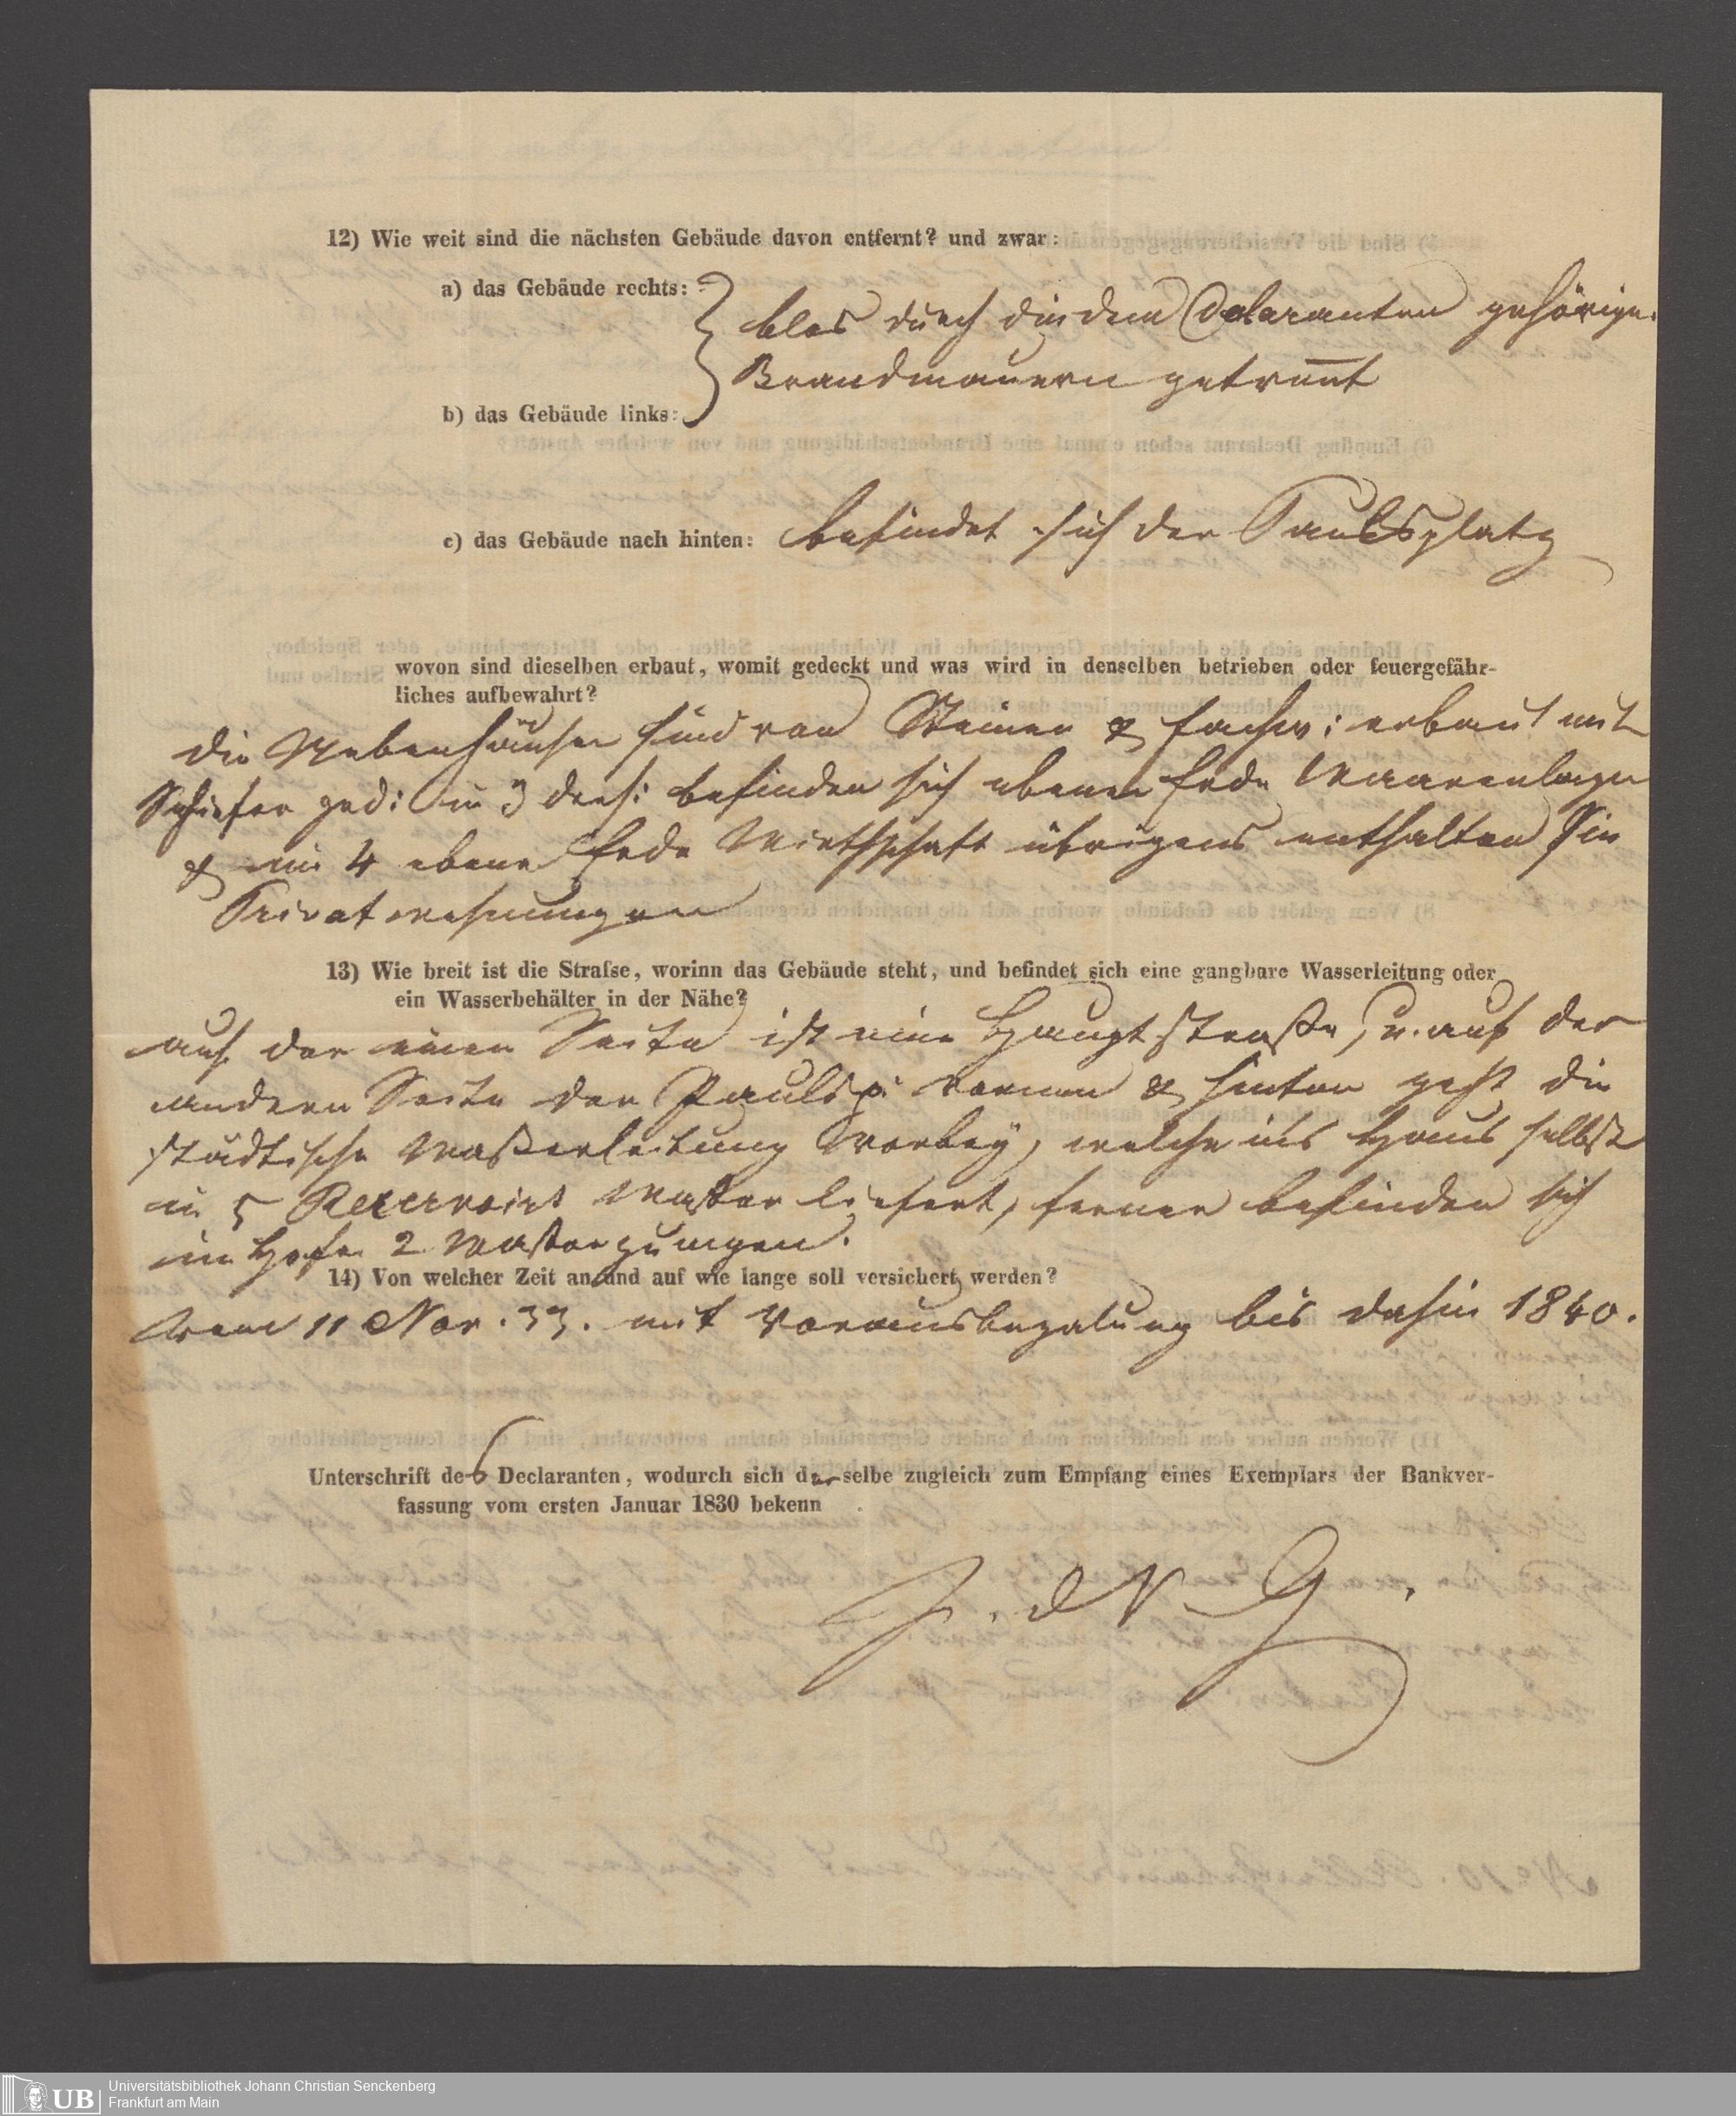 12) Wie weit sind die nächsten Gebäude davon entfernt? und zwar:
a) das Gebäude rechts:
blos durch die dem Declaranten gehörige
Brandmauern getrennt
b) das Gebäude links:
c) das Gebäude nach hinten: befindet sich der Paulsplatz
wovon sind dieselben erbaut, womit gedeckt und was wird in denselben betrieben oder feuergefähr-
liches aufbewahrt?
die Nebenhäuser sind von Steinen & Fachw: erbaut mit
Schiefer ged: in 3 ders: befinden sich ebener Erde Waarenlager
& in 4 ebene Erde Wirthschaft übrigens enthalten Sie
Privatwohnungen
13) Wie breit ist die Strafse, worinn das Gebäude steht, und befindet sich eine gangbare Wasserleitung oder
ein Wasserbehälter in der Nähe?
auf der einen Seite ist eine Hauptstraße, u. auf der
andern Seite der Paulspl: vornen & hinten geht die
städtische Waßerleitung vorbey, welche ins Haus selbst
in 5 Reservoirs Waßer liefert, ferner befinden sich
im Hofe 2 Waßerpumpen.
14) Von welcher Zeit an und auf wie lange soll versichert werden?
Vom 11 Nov. 33. mit Vorausbezalung bis dahin 1840.
Unterschrift des Declaranten, wodurch sich derselbe zugleich zum Empfang eines Exemplars der Bankver-
fassung vom ersten Januar 1830 bekenn
UB
Universitätsbibliothek Johann Christian Senckenberg
Frankfurt am Main